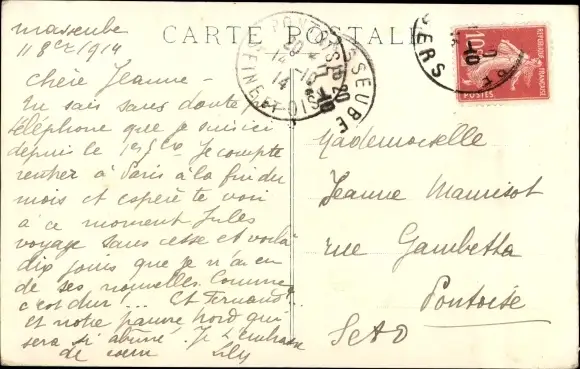 CARTE POSTALE
Masseube
11 8bre 1914
Chère Jeanne -
Tu sais sans doute par
téléphone que je suis ici
depuis le 1er 8bre. Je compte
rentrer à Paris à la fin du
mois et espère te voir
à ce moment. Jules
voyage sans cesse et voilà
dix jours que je n'ai eu
de ses nouvelles. Comme
c'est dur!... Et Fernand?
et notre pauvre Nord qui
sera si abîmé. Je t'embrasse
de cœur Lily
PONTOISE
SEINE-ET-OISE
MASSEUBE
GERS
REPUBLIQUE FRANCAISE
10c
POSTES
Mademoiselle
Jeanne
rue Gambetta
Pontoise
S et O